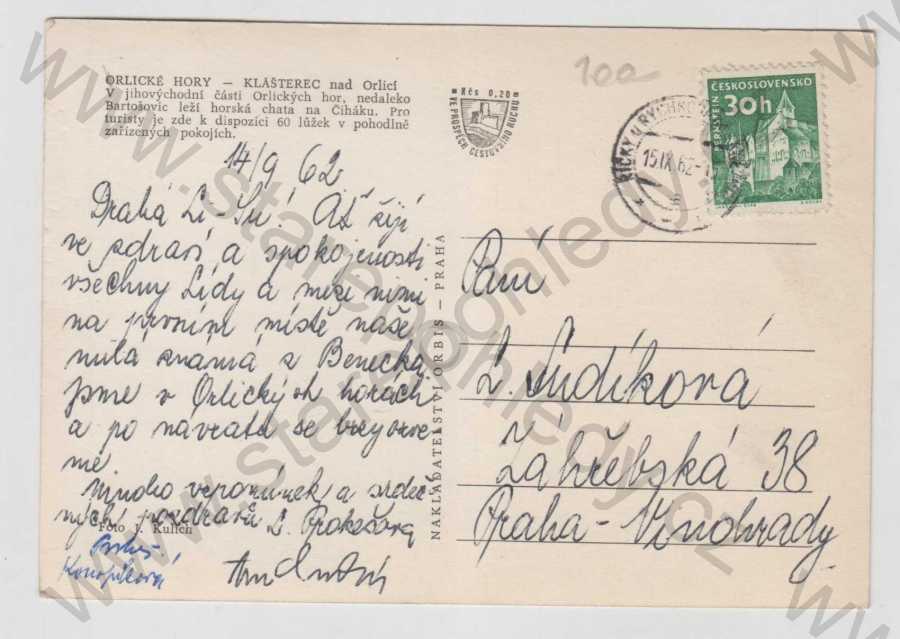 ORLICKÉ HORY — KLÁŠTEREC nad Orlicí
V jihovýchodní části Orlických hor, nedaleko
Bartošovic leží horská chata na Čiháku. Pro
turisty je zde k dispozici 60 lůžek v pohodlně
zařízených pokojích.
Kčs 0,20
VE PROSPĚCH CESTOVNÍHO RUCHU
10a
ČESKOSLOVENSKO
30h
PERNŠTEJN
ŘÍČKY V
15.IX.62
14/9 62
Drahá Li-Šu! Ať žijí
ve zdraví a spokojenosti
všechny Lídy a mezi nimi
na prvním místě naše
milá známá z Benecka,
jsme v Orlických horách
a po návratu se brzy ozve
me
Mnoho vzpomínek a srdeč
ných pozdravů L. Prokešová
Konopíková
Foto J. Kulich
NAKLADATELSTVÍ ORBIS — PRAHA
Paní
L. Šudíková
Záhřebská 38
Praha - Vinohrady
www.starepohlednice.cz